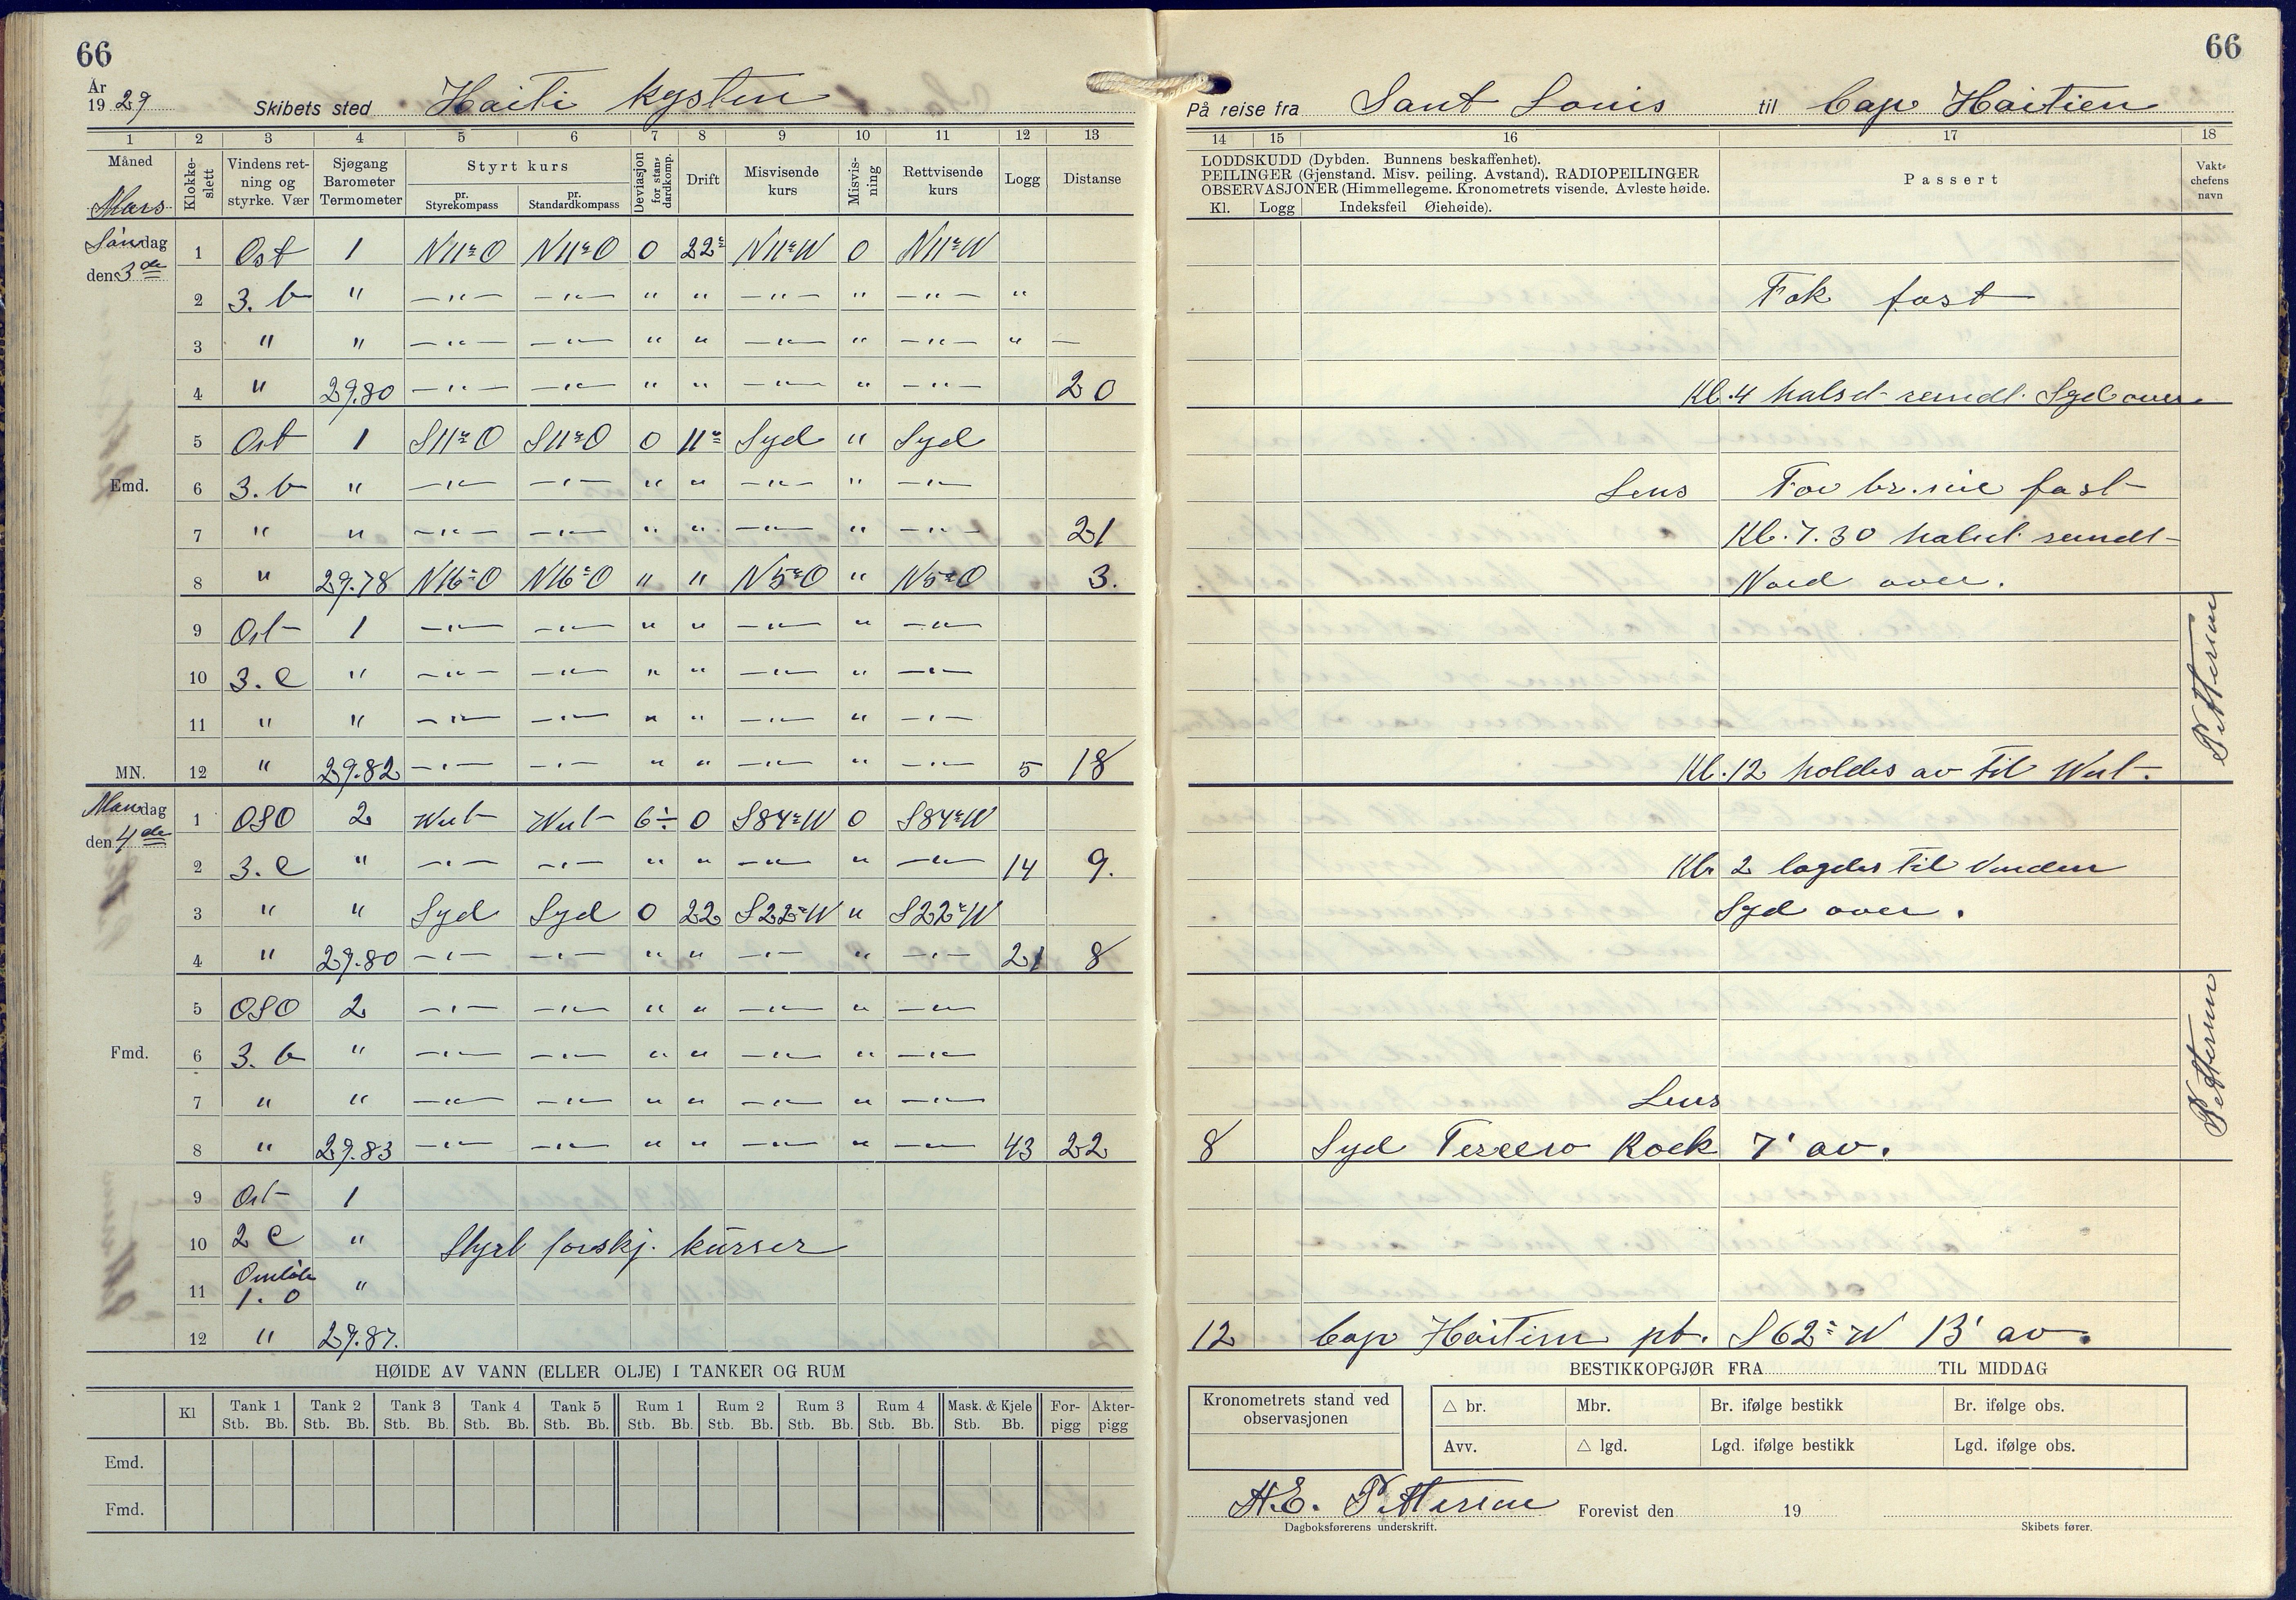 66
År
19 29 Skibets sted Haiti kysten
1 2 3 4 5 6 7 8 9 10 11 12 13
Måned Mars Klokkeslett Vindens retning og styrke. Vær Sjøgang Barometer Termometer Styrt kurs pr. Styrekompass pr. Standardkompass Deviasjon for standardkomp. Drift Misvisende kurs Misvisning Rettvisende kurs Logg Distanse
Søndag den 3de
1 Ost 1 N11°O N11°O 0 22° N11°W 0 N11°W
2 3. b " —"— —"— " " —"— " —"— "
3 " " —"— —"— " " —"— " —"— " —
4 " 29.80 —"— —"— " " —"— " —"— 20
5 Ost 1 S11°O S11°O 0 11° Syd " Syd
Emd. 6 3. b " —"— —"— " " —"— " —"—
7 " " —"— —"— " " —"— " —"— 21
8 " 29.78 N16°O N16°O " " N5°O " N5°O 3.
9 Ost 1 —"— —"— " " —"— " —"—
10 3. c " —"— —"— " " —"— " —"—
11 " " —"— —"— " " —"— " —"—
MN. 12 " 29.82 —"— —"— " " —"— " —"— 5 18
Mandag den 4de
1 OSO 2 West West 6÷ 0 S84°W 0 S84°W
2 3. c " —"— —"— " " —"— " —"— 14 9.
3 " " Syd Syd 0 22 S22°W " S22°W
4 " 29.80 —"— —"— " " —"— " —"— 21 8
5 OSO 2 —"— —"— " " —"— " —"—
Fmd. 6 3. b " —"— —"— " " —"— " —"—
7 " " —"— —"— " " —"— " —"—
8 " 29.83 —"— —"— " " —"— " —"— 43 22
9 Ost 1
10 2 c " Styrt forskj. kurser
11 1. 0 "
12 " 29.87.
HØIDE AV VANN (ELLER OLJE) I TANKER OG RUM
Kl Tank 1 Tank 2 Tank 3 Tank 4 Tank 5 Rum 1 Rum 2 Rum 3 Rum 4 Mask. & Kjele For- Akter-
Stb. Bb. Stb. Bb. Stb. Bb. Stb. Bb. Stb. Bb. Stb. Bb. Stb. Bb. Stb. Bb. Stb. Bb. Stb. Bb. pigg pigg
Emd.
Fmd.
66
På reise fra Sant Louis til Cap Haitien
14 15 16 17 18
LODDSKUDD (Dybden. Bunnens beskaffenhet).
PEILINGER (Gjenstand. Misv. peiling. Avstand). RADIOPEILINGER
OBSERVASJONER (Himmellegeme. Kronometrets visende. Avleste høide.
Kl. Logg Indeksfeil Øiehøide).
Passert
Vaktchefens navn
Fok fast
Kl. 4 halsd rundt Syd over.
Lens For br. nie fast
Kl. 7.30 halsd rundt
Nord over.
Pettersen
Kl. 12 holdes av til West.
Kl. 2 lagdes til Vinden
Syd over.
Pettersen
Lens
8 Syd Tercero Rock 7' av.
12 Cap Haitien pt. S62°W 13' av.
BESTIKKOPGJØR FRA TIL MIDDAG
Kronometrets stand ved observasjonen
△ br. Mbr. Br. ifølge bestikk Br. ifølge obs.
Avv. △ lgd. Lgd. ifølge bestikk Lgd. ifølge obs.
H.E. Pettersen Forevist den 19
Dagboksførerens underskrift. Skibets fører.